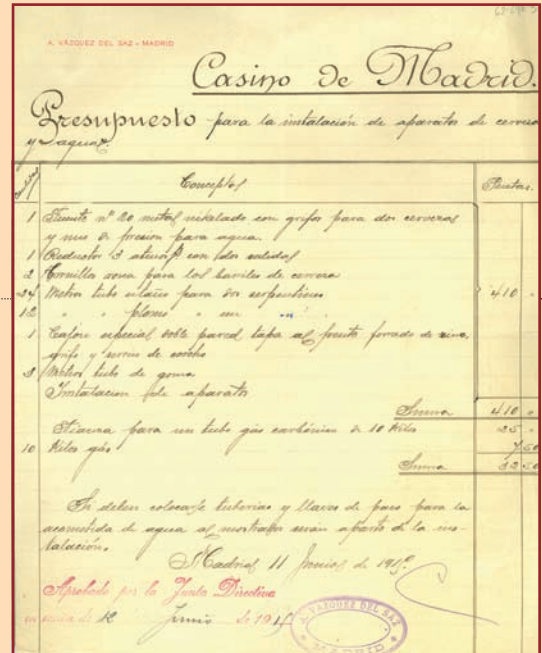 A. VAZQUEZ DEL SAZ - MADRID
Casino de Madrid.
Presupuesto para la instalación de aparatos de cerveza
y aguas.
Conceptos
Pesetas.
1 Fuente nº 20 metal nikelado con grifos para dos cervezas
y uno de presion para agua.
1 Reductor 3 con dos salidas
2 Tornillo rosca para los barriles de cerveza
24 Metros tubo estaño para dos serpentines 410 "
12 " " plomo " un "
1 Cajon especial doble pared, tapa al frente forrado de zinc,
grifo y de corcho
3 Metros tubo de goma
Instalacion de aparato
Suma 410 "
Fianza para un tubo gas carbónico de 10 Kilos 25 "
10 Kilos gas 7 50
Suma 32 50
Si deben colocarse tuberias y llaves de paso para la
acometida de agua al mostrador serán aparte de la ins-
talación.
Madrid 11 Junio de
Aprobado por la Junta Directiva
en sesión de 12 Junio de 191
A. VAZQUEZ DEL SAZ
MADRID